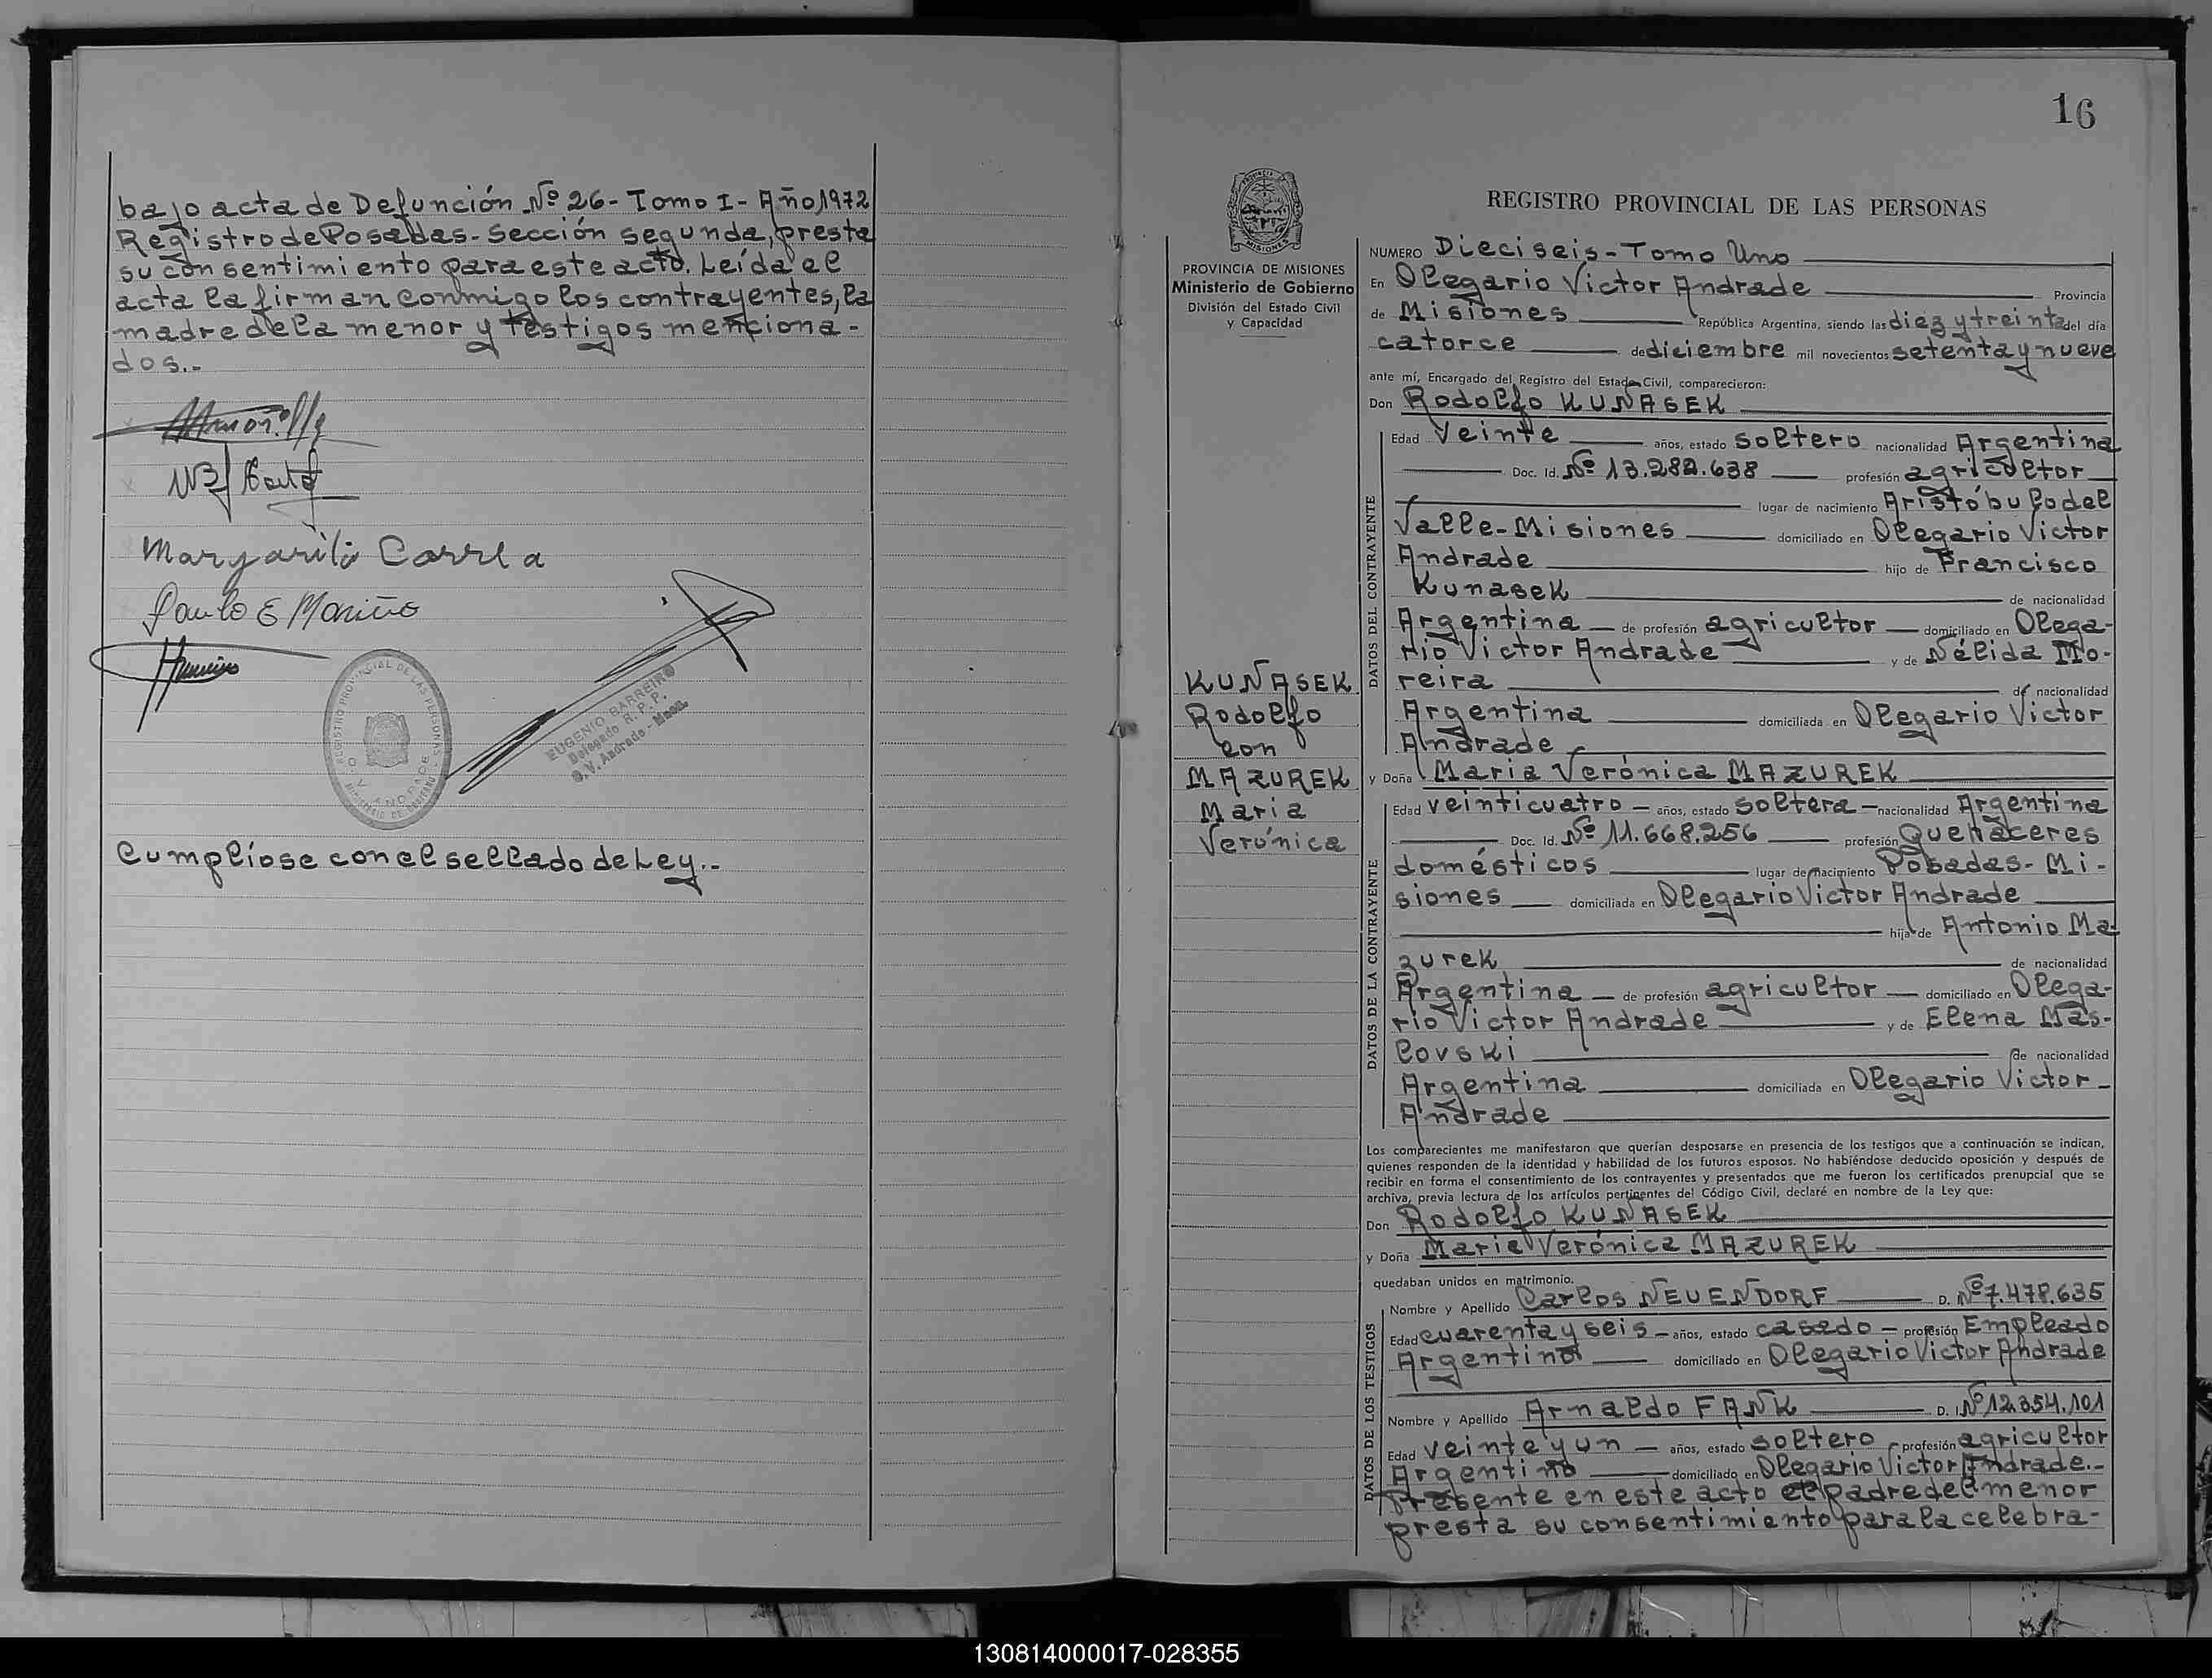 bajo acta de Defunción Nº 26 - Tomo I - Año 1972
Registro de Posadas - Sección segunda, presta
su consentimiento para este acto. Leída el
acta la firman conmigo los contrayentes, la
madre de la menor y testigos menciona-
dos.-
Margarita Correa
Paulo E Mariño
REGISTRO PROVINCIAL DE LAS PERSONAS
O. V. ANDRADE
EUGENIO BARREIRO
Delegado R. P. P.
O. V. Andrade - Mnes.
Cumplíose con el sellado de Ley.-
16
PROVINCIA DE MISIONES
Ministerio de Gobierno
División del Estado Civil
y Capacidad
KUNASEK
Rodolfo
con
MAZUREK
Maria
Verónica
REGISTRO PROVINCIAL DE LAS PERSONAS
NUMERO Dieciseis - Tomo Uno
En Olegario Victor Andrade Provincia
de Misiones República Argentina, siendo las diez y treinta del día
catorce de diciembre mil novecientos setenta y nueve
ante mí, Encargado del Registro del Estado Civil, comparecieron:
Don Rodolfo KUNASEK
DATOS DEL CONTRAYENTE
Edad Veinte años, estado soltero nacionalidad Argentina
Doc. Id. Nº 13.282.638 profesión agricultor
lugar de nacimiento Aristóbulo del
Valle - Misiones domiciliado en Olegario Victor
Andrade hijo de Francisco
Kunasek de nacionalidad
Argentina de profesión agricultor domiciliado en Olega-
rio Victor Andrade y de Nélida Mo-
reira de nacionalidad
Argentina domiciliada en Olegario Victor
Andrade
y Doña Maria Verónica MAZUREK
DATOS DE LA CONTRAYENTE
Edad veinticuatro años, estado soltera nacionalidad Argentina
Doc. Id. Nº 11.668.256 profesión Quehaceres
domésticos lugar de nacimiento Posadas - Mi-
siones domiciliada en Olegario Victor Andrade
hija de Antonio Ma-
zurek de nacionalidad
Argentina de profesión agricultor domiciliado en Olega-
rio Victor Andrade y de Elena Mas-
lovski de nacionalidad
Argentina domiciliada en Olegario Victor
Andrade
Los comparecientes me manifestaron que querían desposarse en presencia de los testigos que a continuación se indican,
quienes responden de la identidad y habilidad de los futuros esposos. No habiéndose deducido oposición y después de
recibir en forma el consentimiento de los contrayentes y presentados que me fueron los certificados prenupcial que se
archiva, previa lectura de los artículos pertinentes del Código Civil, declaré en nombre de la Ley que:
Don Rodolfo KUNASEK
y Doña Maria Verónica MAZUREK
quedaban unidos en matrimonio.
DATOS DE LOS TESTIGOS
Nombre y Apellido Carlos NEUENDORF D. Nº 7.478.635
Edad cuarenta y seis años, estado casado profesión Empleado
Argentino domiciliado en Olegario Victor Andrade
Nombre y Apellido Arnaldo FANK D. I Nº 12.354.101
Edad veinte y un años, estado soltero profesión agricultor
Argentino domiciliado en Olegario Victor Andrade.-
Presente en este acto el padre del menor
presta su consentimiento para la celebra-
130814000017-028355